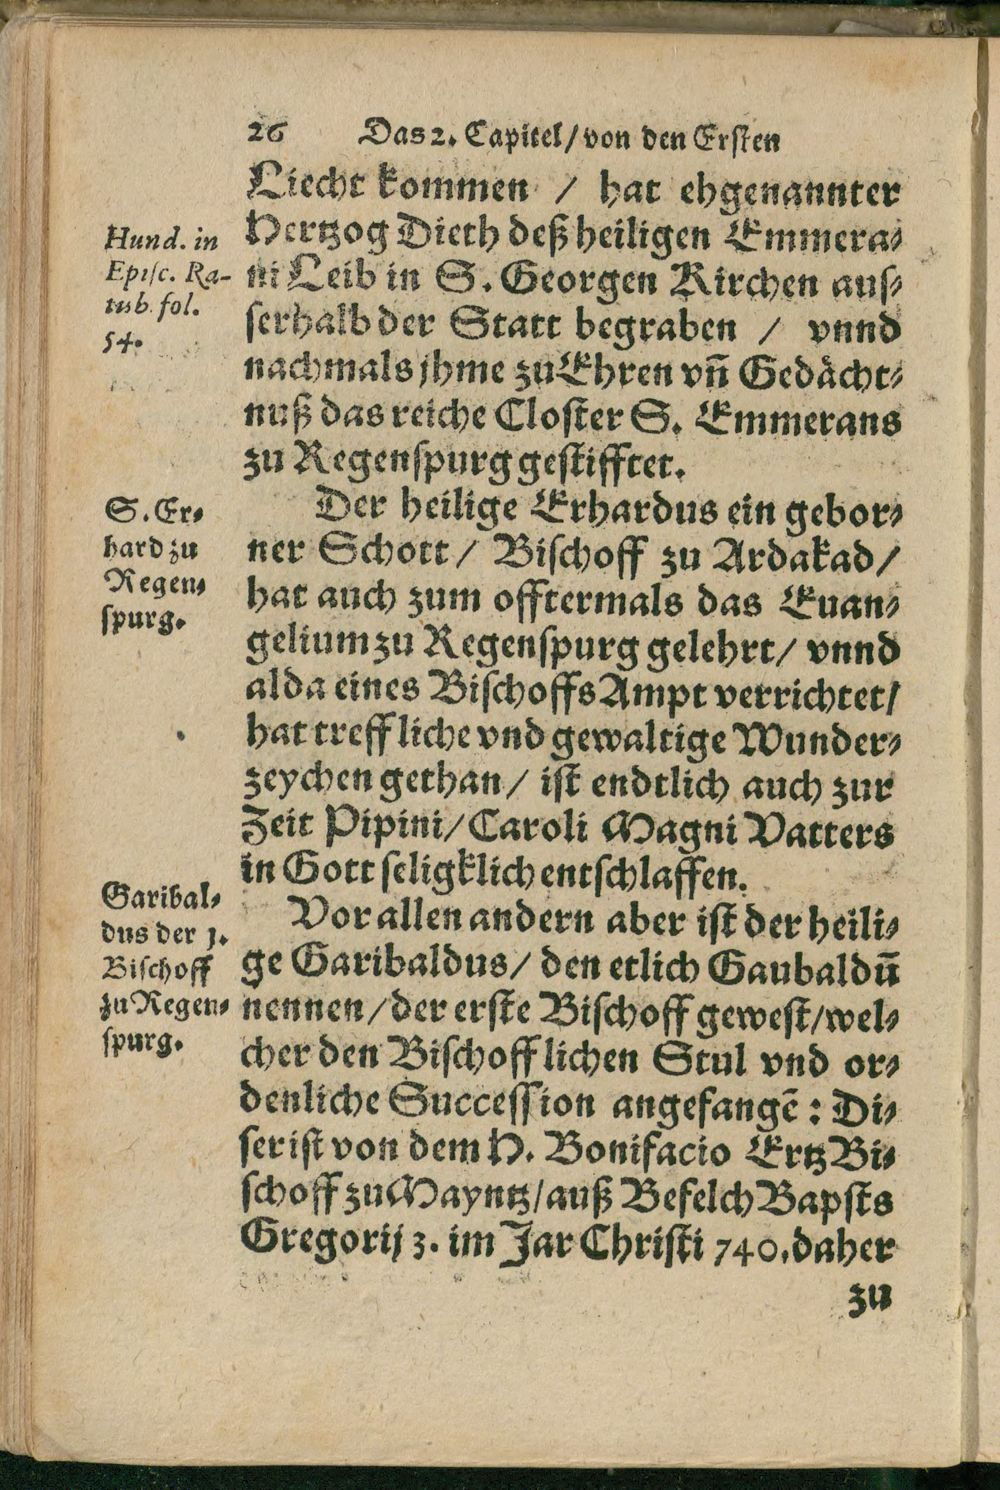 26 Das 2. Capitel/ von den Ersten
Liecht kommen / hat ehgenannter
Hertzog Dieth deß heiligen Emmera-
ni Leib in S. Georgen Kirchen aus-
serhalb der Statt begraben / vnnd
nachmals jhme zu Ehren vñ Gedächt-
nuß das reiche Closter S. Emmerans
zu Regenspurg gestifftet.
Hund. in
Episc. Ra-
tisb. fol.
54.
Der heilige Erhardus ein gebor-
ner Schott / Bischoff zu Ardakad /
hat auch zum offtermals das Euan-
gelium zu Regenspurg gelehrt / vnnd
alda eines Bischoffs Ampt verrichtet /
hat treffliche vnd gewaltige Wunder-
zeychen gethan / ist endtlich auch zur
Zeit Pipini / Caroli Magni Vatters
in Gott seligklich entschlaffen.
S. Er-
hard zu
Regen-
spurg.
Vor allen andern aber ist der heili-
ge Garibaldus / den etlich Gaubaldū
nennen / der erste Bischoff gewest / wel-
cher den Bischofflichen Stul vnd or-
denliche Succession angefangē : Di-
ser ist von dem H. Bonifacio Ertz Bi-
schoff zu Mayntz / auß Befelch Bapsts
Gregorij 3. im Jar Christi 740. daher
Garibal-
dus der 1.
Bischoff
zu Regen-
spurg.
zu